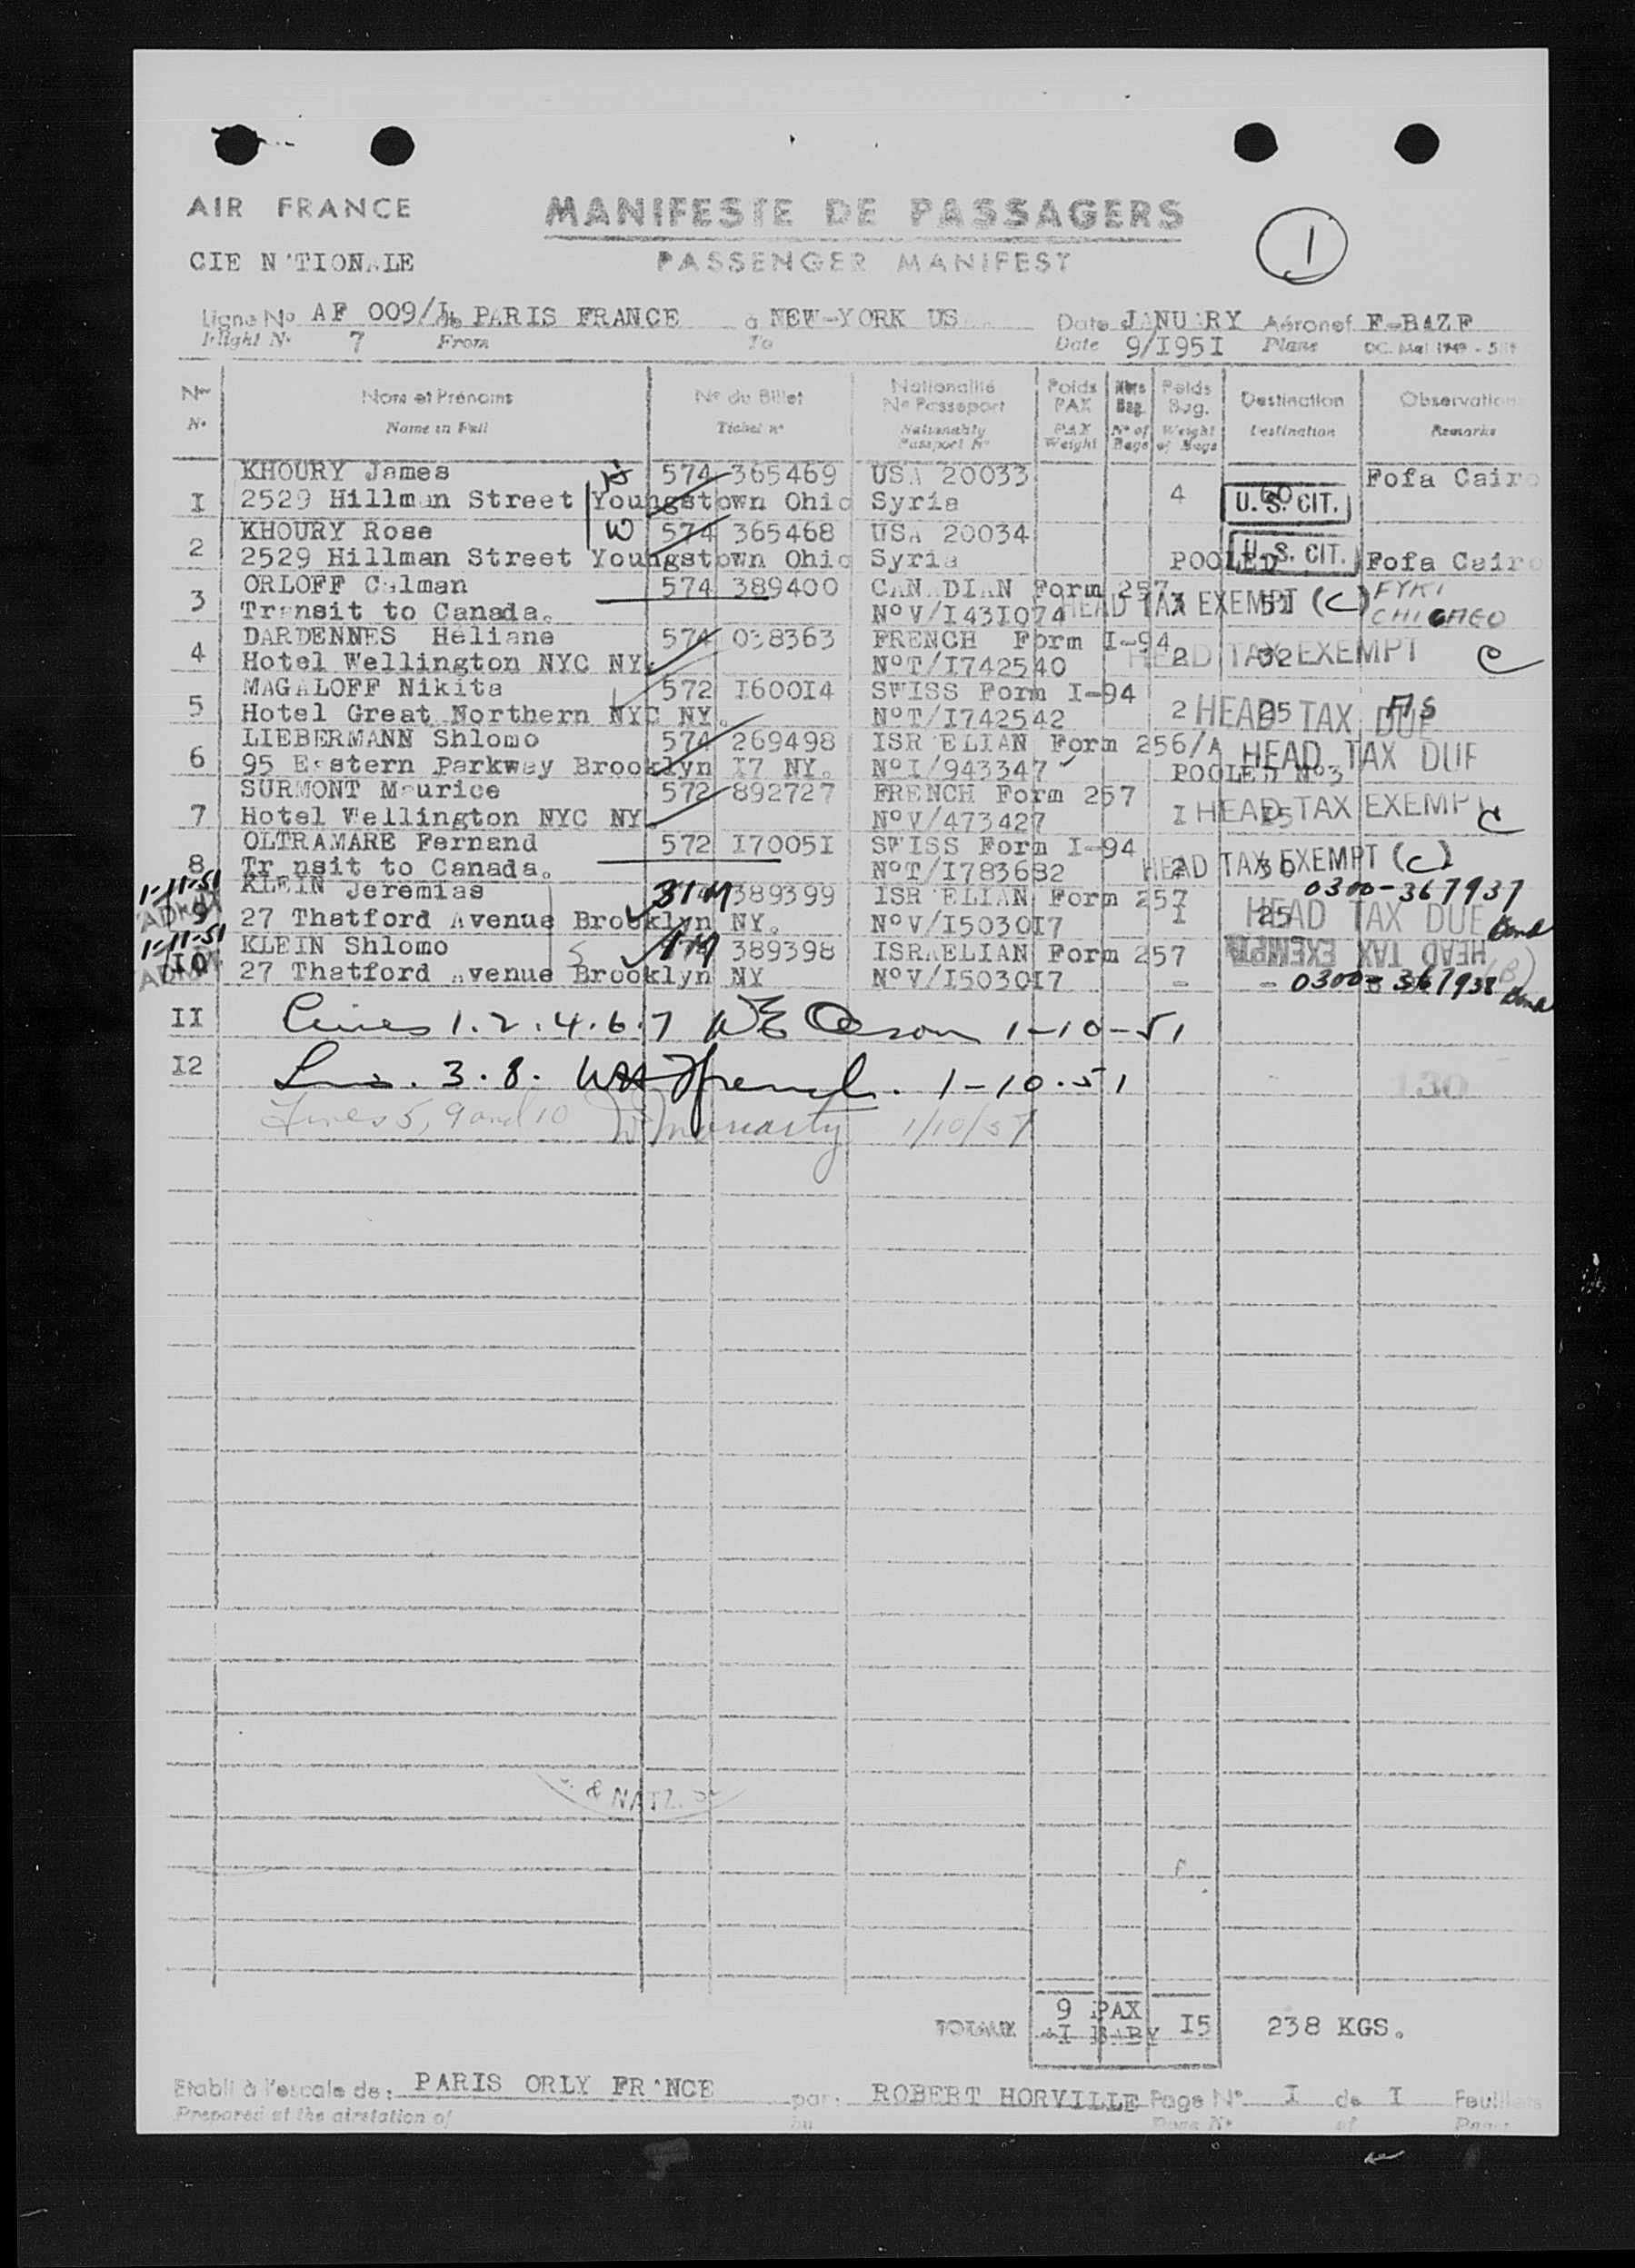 AIR FRANCE
MANIFESTE DE PASSAGERS
1
CIE N'TION LE
PASSENGER MANIFEST
Ligne No AF 009/ de PARIS FRANCE à NEW-YORK US Date J NU RY Aéronef F-BAZF
Flight N° 7 From To Date 9/I95I Plane
Nos Nom et Prénoms No du Billet Nationalité No Passeport Poids PAX Nbre Bag. Poids Bag. Destination Observation
N° Name in Full Ticket n° Nationality Passport N° PAX Weight N° of Bags Weight of Bags Destination Remarks
KHOURY James 574 365469 USA 20033 Fofa Cairo
I 2529 Hillm n Street Youngstown Ohio Syria 4 60 U.S. CIT.
KHOURY Rose W 574 365468 USA 20034
2 2529 Hillman Street Youngstown Ohio Syria POOLED U.S. CIT. Fofa Cairo
ORLOFF Calman 574 389400 CAN DIAN Form 257
3 Transit to Canada. N°V/I43I074 HEAD TAX EXEMPT (C) CHICAGO
DARDENNES Heliane 574 038363 FRENCH Form I-94
4 Hotel Wellington NYC NY. N°T/I742540 2 32 HEAD TAX EXEMPT C
MAGALOFF Nikita 572 I600I4 SWISS Form I-94
5 Hotel Great Northern NYC NY. N°T/I742542 2 25 HEAD TAX DUE
LIEBERMANN Shlomo 574 269498 ISR ELIAN Form 256/A HEAD TAX DUE
6 95 Eastern Parkway Brooklyn I7 NY. N°I/943347 POOLED N°3
SURMONT Maurice 572 892727 FRENCH Form 257
7 Hotel Wellington NYC NY. N°V/473427 I I5 HEAD TAX EXEMPT C
OLTRAMARE Fernand 572 I7005I SWISS Form I-94
8 Tr nsit to Canada. N°T/I783682 2 30 HEAD TAX EXEMPT (C)
1-11-51 KLEIN Jeremias 389399 ISR ELIAN Form 257 0300-367937
9 27 Thatford Avenue Brooklyn NY. N°V/I5030I7 I 25 HEAD TAX DUE Bond
1-11-51 KLEIN Shlomo 389398 ISRAELIAN Form 257 HEAD TAX EXEMPT
I0 27 Thatford Avenue Brooklyn NY N°V/I5030I7 - - 0300-367938 (B) Bond
II Lines 1.2.4.6.7 1-10-51
I2 Lines. 3.8. 1-10-51
130
Lines 5, 9 and 10 Moriarty 1/10/51
& NATZ.
TOTAUX 9 PAX +I BABY I5 238 KGS.
Etabli à l'escale de: PARIS ORLY FR NCE par: ROBERT HORVILLE Page N° I de I Feuillets
Prepared at the airstation of by Page N° of Pages